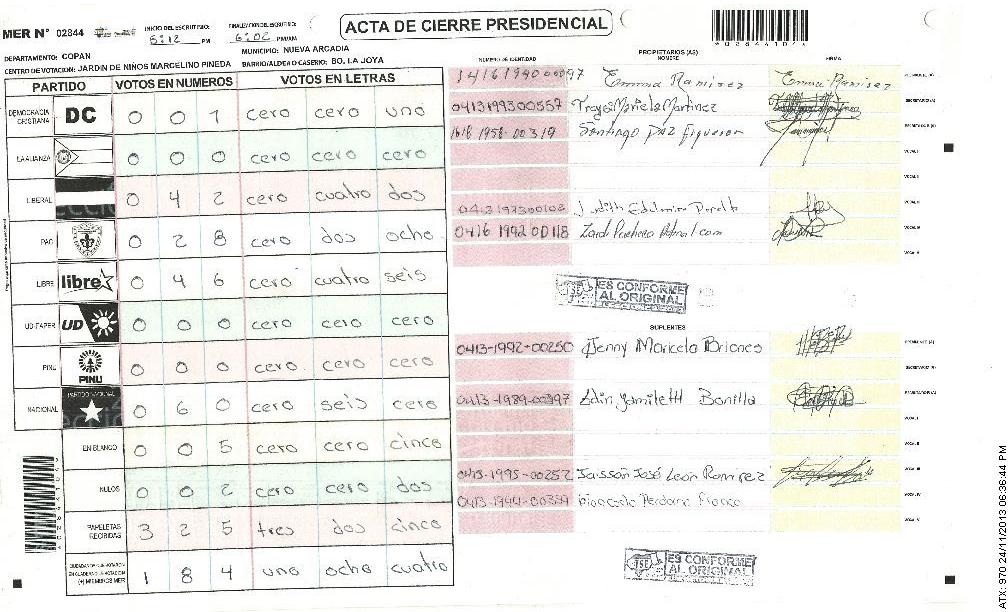 ACTA DE CIERRE PRESIDENCIAL
MER N° 02844
INICIO DEL ESCRUTINIO: 5:12 PM
FINALIZACION DEL ESCRUTINIO: 6:02 PM/AM
DEPARTAMENTO: COPAN
MUNICIPIO: NUEVA ARCADIA
CENTRO DE VOTACION: JARDIN DE NIÑOS MARCELINO PINEDA BARRIO/ALDEA O CASERIO: BO. LA JOYA
PARTIDO VOTOS EN NUMEROS VOTOS EN LETRAS
DEMOCRACIA CRISTIANA DC 0 0 1 cero cero uno
LA ALIANZA 0 0 0 cero cero cero
LIBERAL 0 4 2 cero cuatro dos
PAC 0 2 8 cero dos ocho
LIBRE libre 0 4 6 cero cuatro seis
UD-FAPER UD 0 0 0 cero cero cero
PINU PINU 0 0 0 cero cero cero
NACIONAL PARTIDO NACIONAL 0 6 0 cero seis cero
EN BLANCO 0 0 5 cero cero cinco
NULOS 0 0 2 cero cero dos
PAPELETAS RECIBIDAS 3 2 5 tres dos cinco
(+) MIEMBROS MER 1 8 4 uno ocho cuatro
PROPIETARIOS (AS)
NUMERO DE IDENTIDAD NOMBRE FIRMA
Emma Ramirez Emma Ramirez
0413199300557 Mariela Martinez
Santiago Paz Figueroa
Judith Edelmira Peralta
0416 1992 00118
TSE ES CONFORME AL ORIGINAL
SUPLENTES
0413-1992-00250 Jenny Maricela Briones
0413-1989-00397 Edin Jamileth Bonilla
0413-1995-00252 Jaisson José León Ramirez
TSE ES CONFORME AL ORIGINAL
ATX: 970 24/11/2013 06:36:44 PM